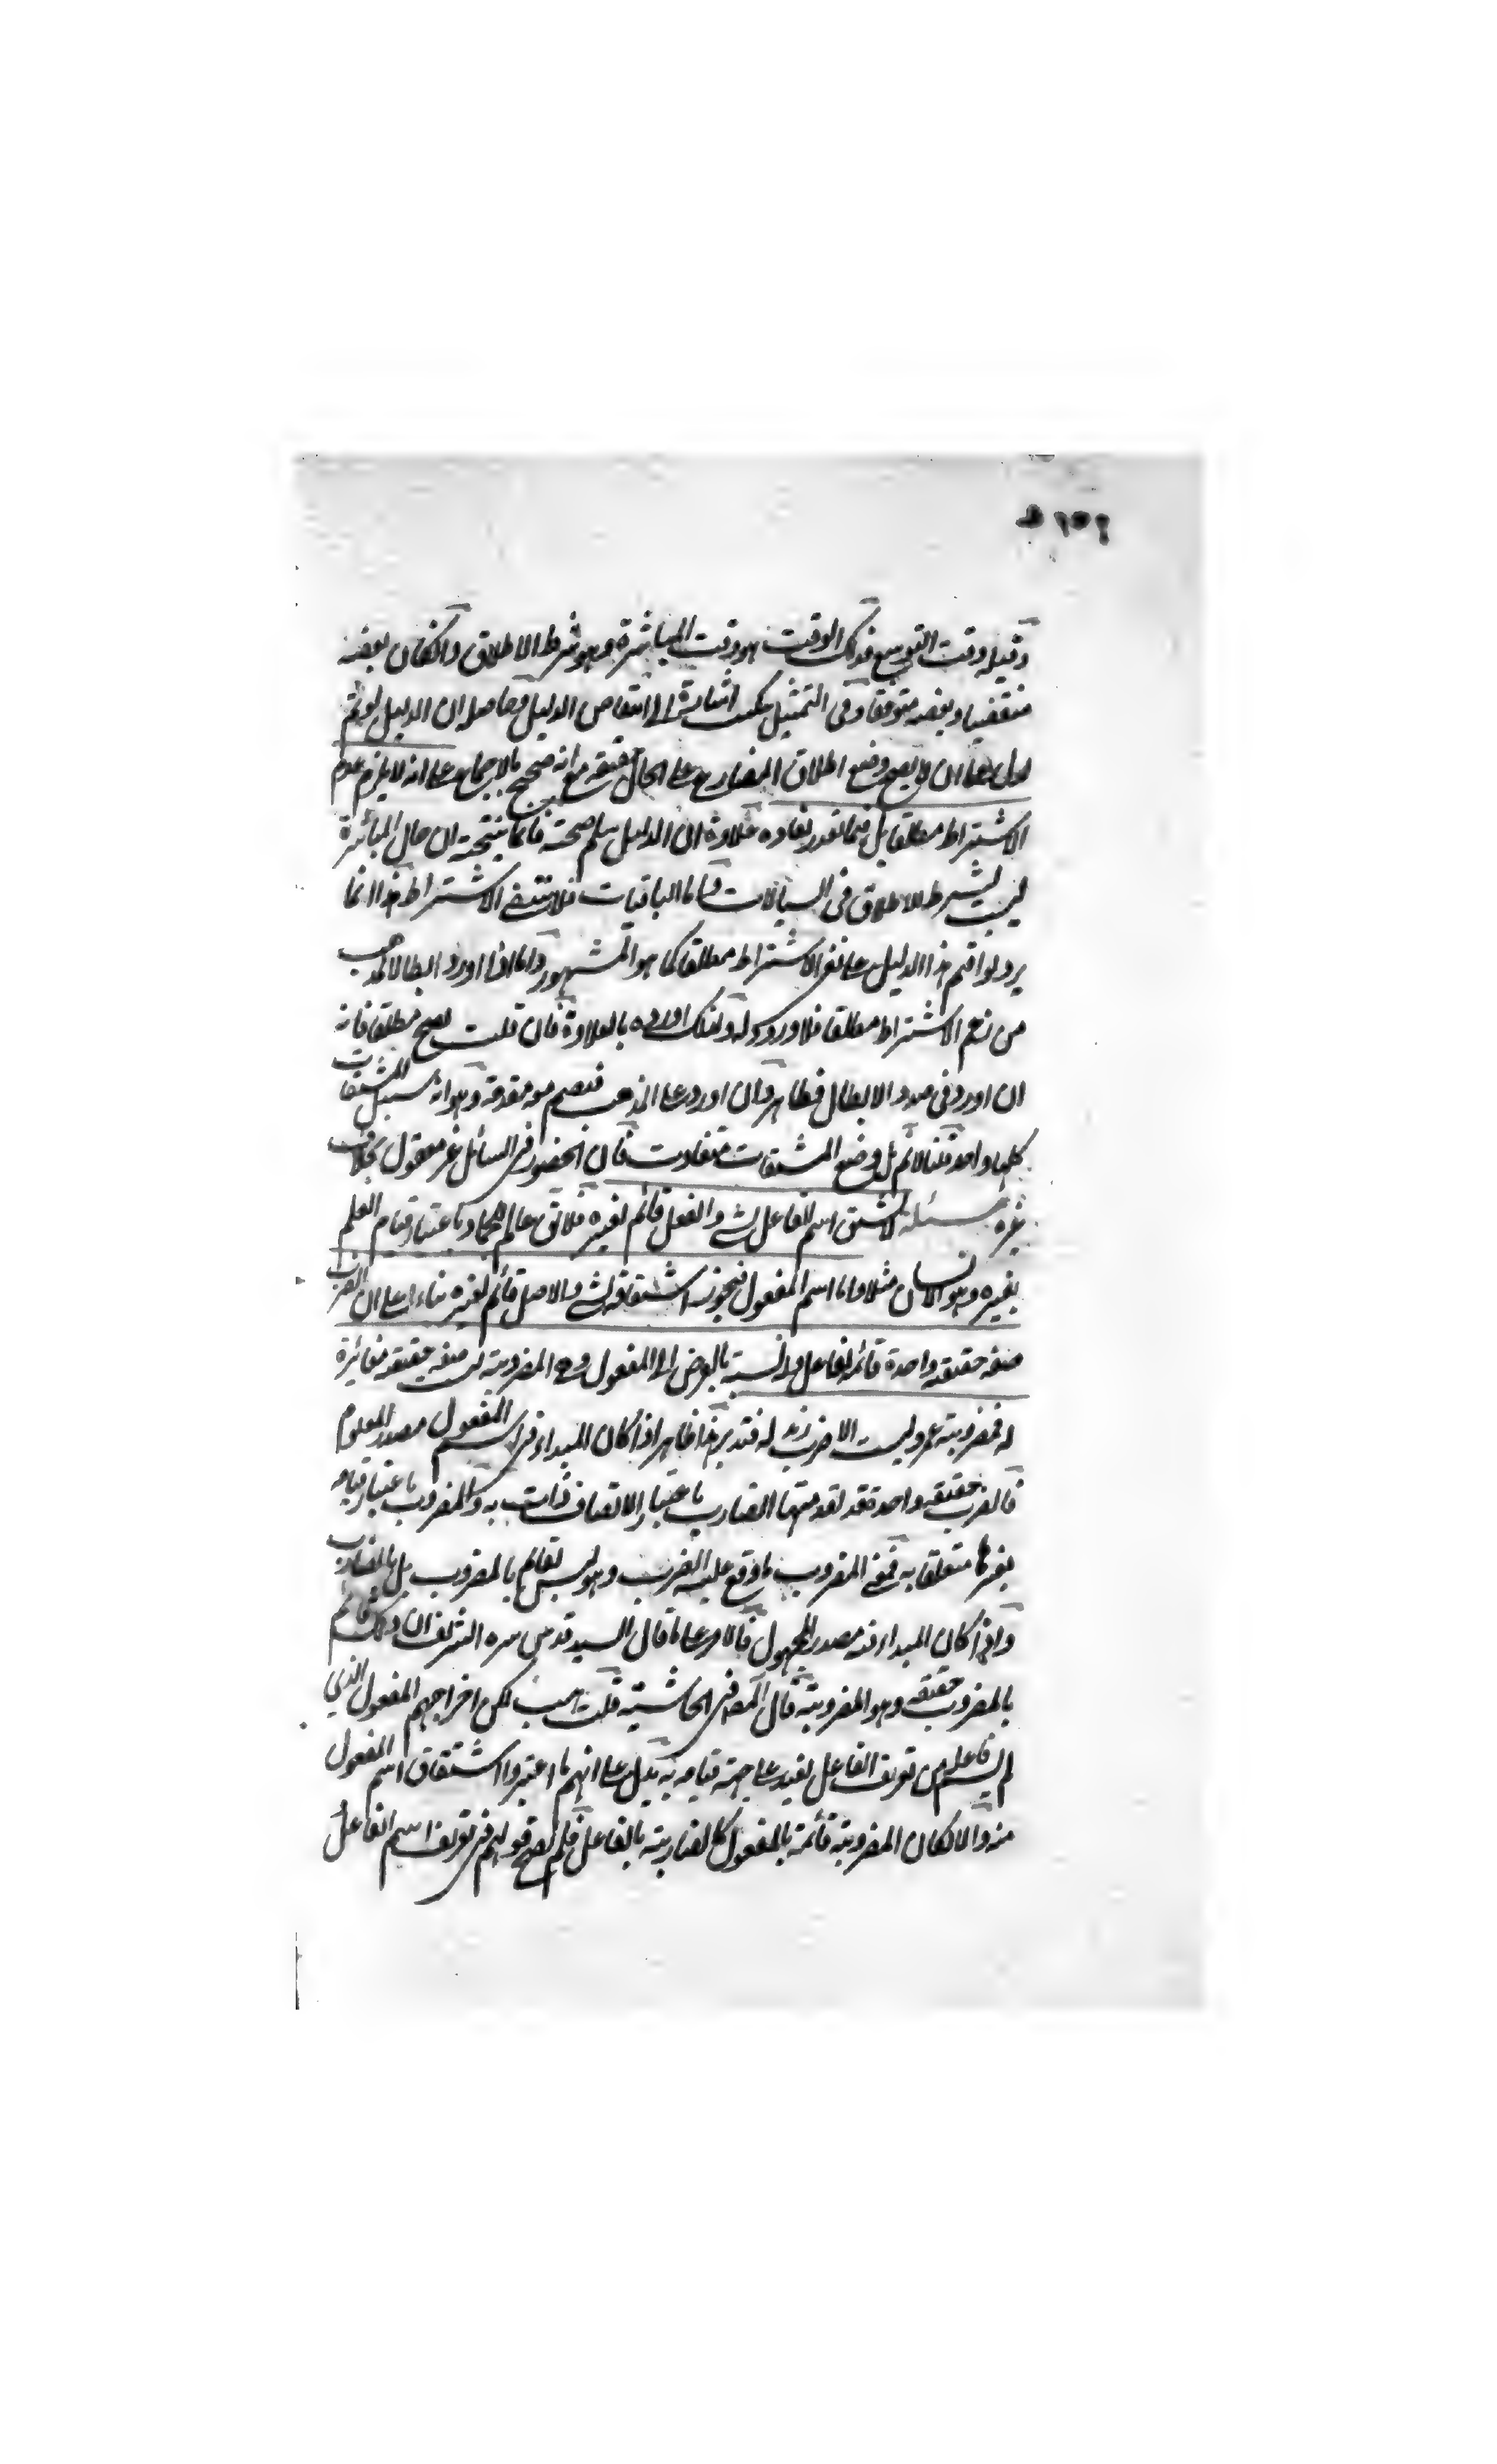 وقيل وقت التوسيع فذلك الوقت هو وقت المباشرة وهو شرط الاطلاق وان كان بعضه
منقضيا وبعضه متوقعا وفي التمثيل بكتب اشارة الى انتقاض الدليل وحاصله ان الدليل لو تم
لدل على ان لا يصح وضع اطلاق المضارع على الحال حقيقة مع انه صحيح بالاجماع على انه لا يلزم عدم
الاشتراط مطلقا بل فيما تعذر بقاءه علاوة ان الدليل سلم صحته فانما ينتجه ان حال المباشرة
ليست بشرط الاطلاق في السيالات واما الباقيات فلا ينتفي الاشتراط هذا انما
يرد لو اقيم هذا الدليل على نفي الاشتراط مطلقا كما هو المشهور واما اذا اورد ابطالا لمذهب
من زعم الاشتراط مطلقا فلا ورود له ولذلك اورده بالعلاوة فان قلت يصح مطلقا فانه
ان اورد في صدد الابطال فظاهر وان اورد على المذهب فيضم معه مقدمة وهو انه سبيل المشتقات
كلها واحد قلنا لا نم بل وضع المشتقات متفاوت فان الحضور في السائل غير معقول بخلاف
غيره مسئلة لا يشتق اسم الفاعل لشيء والفعل قائم لغيره فلا يق عالم للجماد باعتبار قيام العلم
بغيره وهو الانسان مثلا واما اسم المفعول فيجوز اشتقاقه لشيء والاصل قائم لغيره بناء على ان الضرب
صفة حقيقة واحدة قائمة بالفاعل والنسبة بالعرض الى المفعول وهي المضروبية ليست صفة حقيقة مغائرة
له فمضروبية عمرو ليست الا ضرب زيد له فتدبر هذا ظاهر اذا كان المبداء في اسم المفعول مصدر المعلوم
فالضرب حقيقة واحدة فقد لقد منها الضارب باعتبار الاتصاف ذات به والمضروب باعتبار قيامه
بغيرها متعلقا به فمعنى المضروب ما وقع عليه الضرب وهو ليس بقائم بالمضروب بل بالضارب
واذا كان المبداء فيه مصدر المجهول فالامر على ما قال السيد قدس سره الشريف ان ذلك قائم
بالمضروب حقيقة وهو المضروبية قال المصـ في الحاشية قلت هب لكن اخراجهم المفعول الذي
لم يسم فاعله من تعريف الفاعل بقيد على جهة قيامه به يدل على انهم ما اعتبروا اشتقاق اسم المفعول
منه والا لكان المضروبية قائمة بالمفعول كالضاربية بالفاعل فلم يصح قولهم في تعريف اسم الفاعل